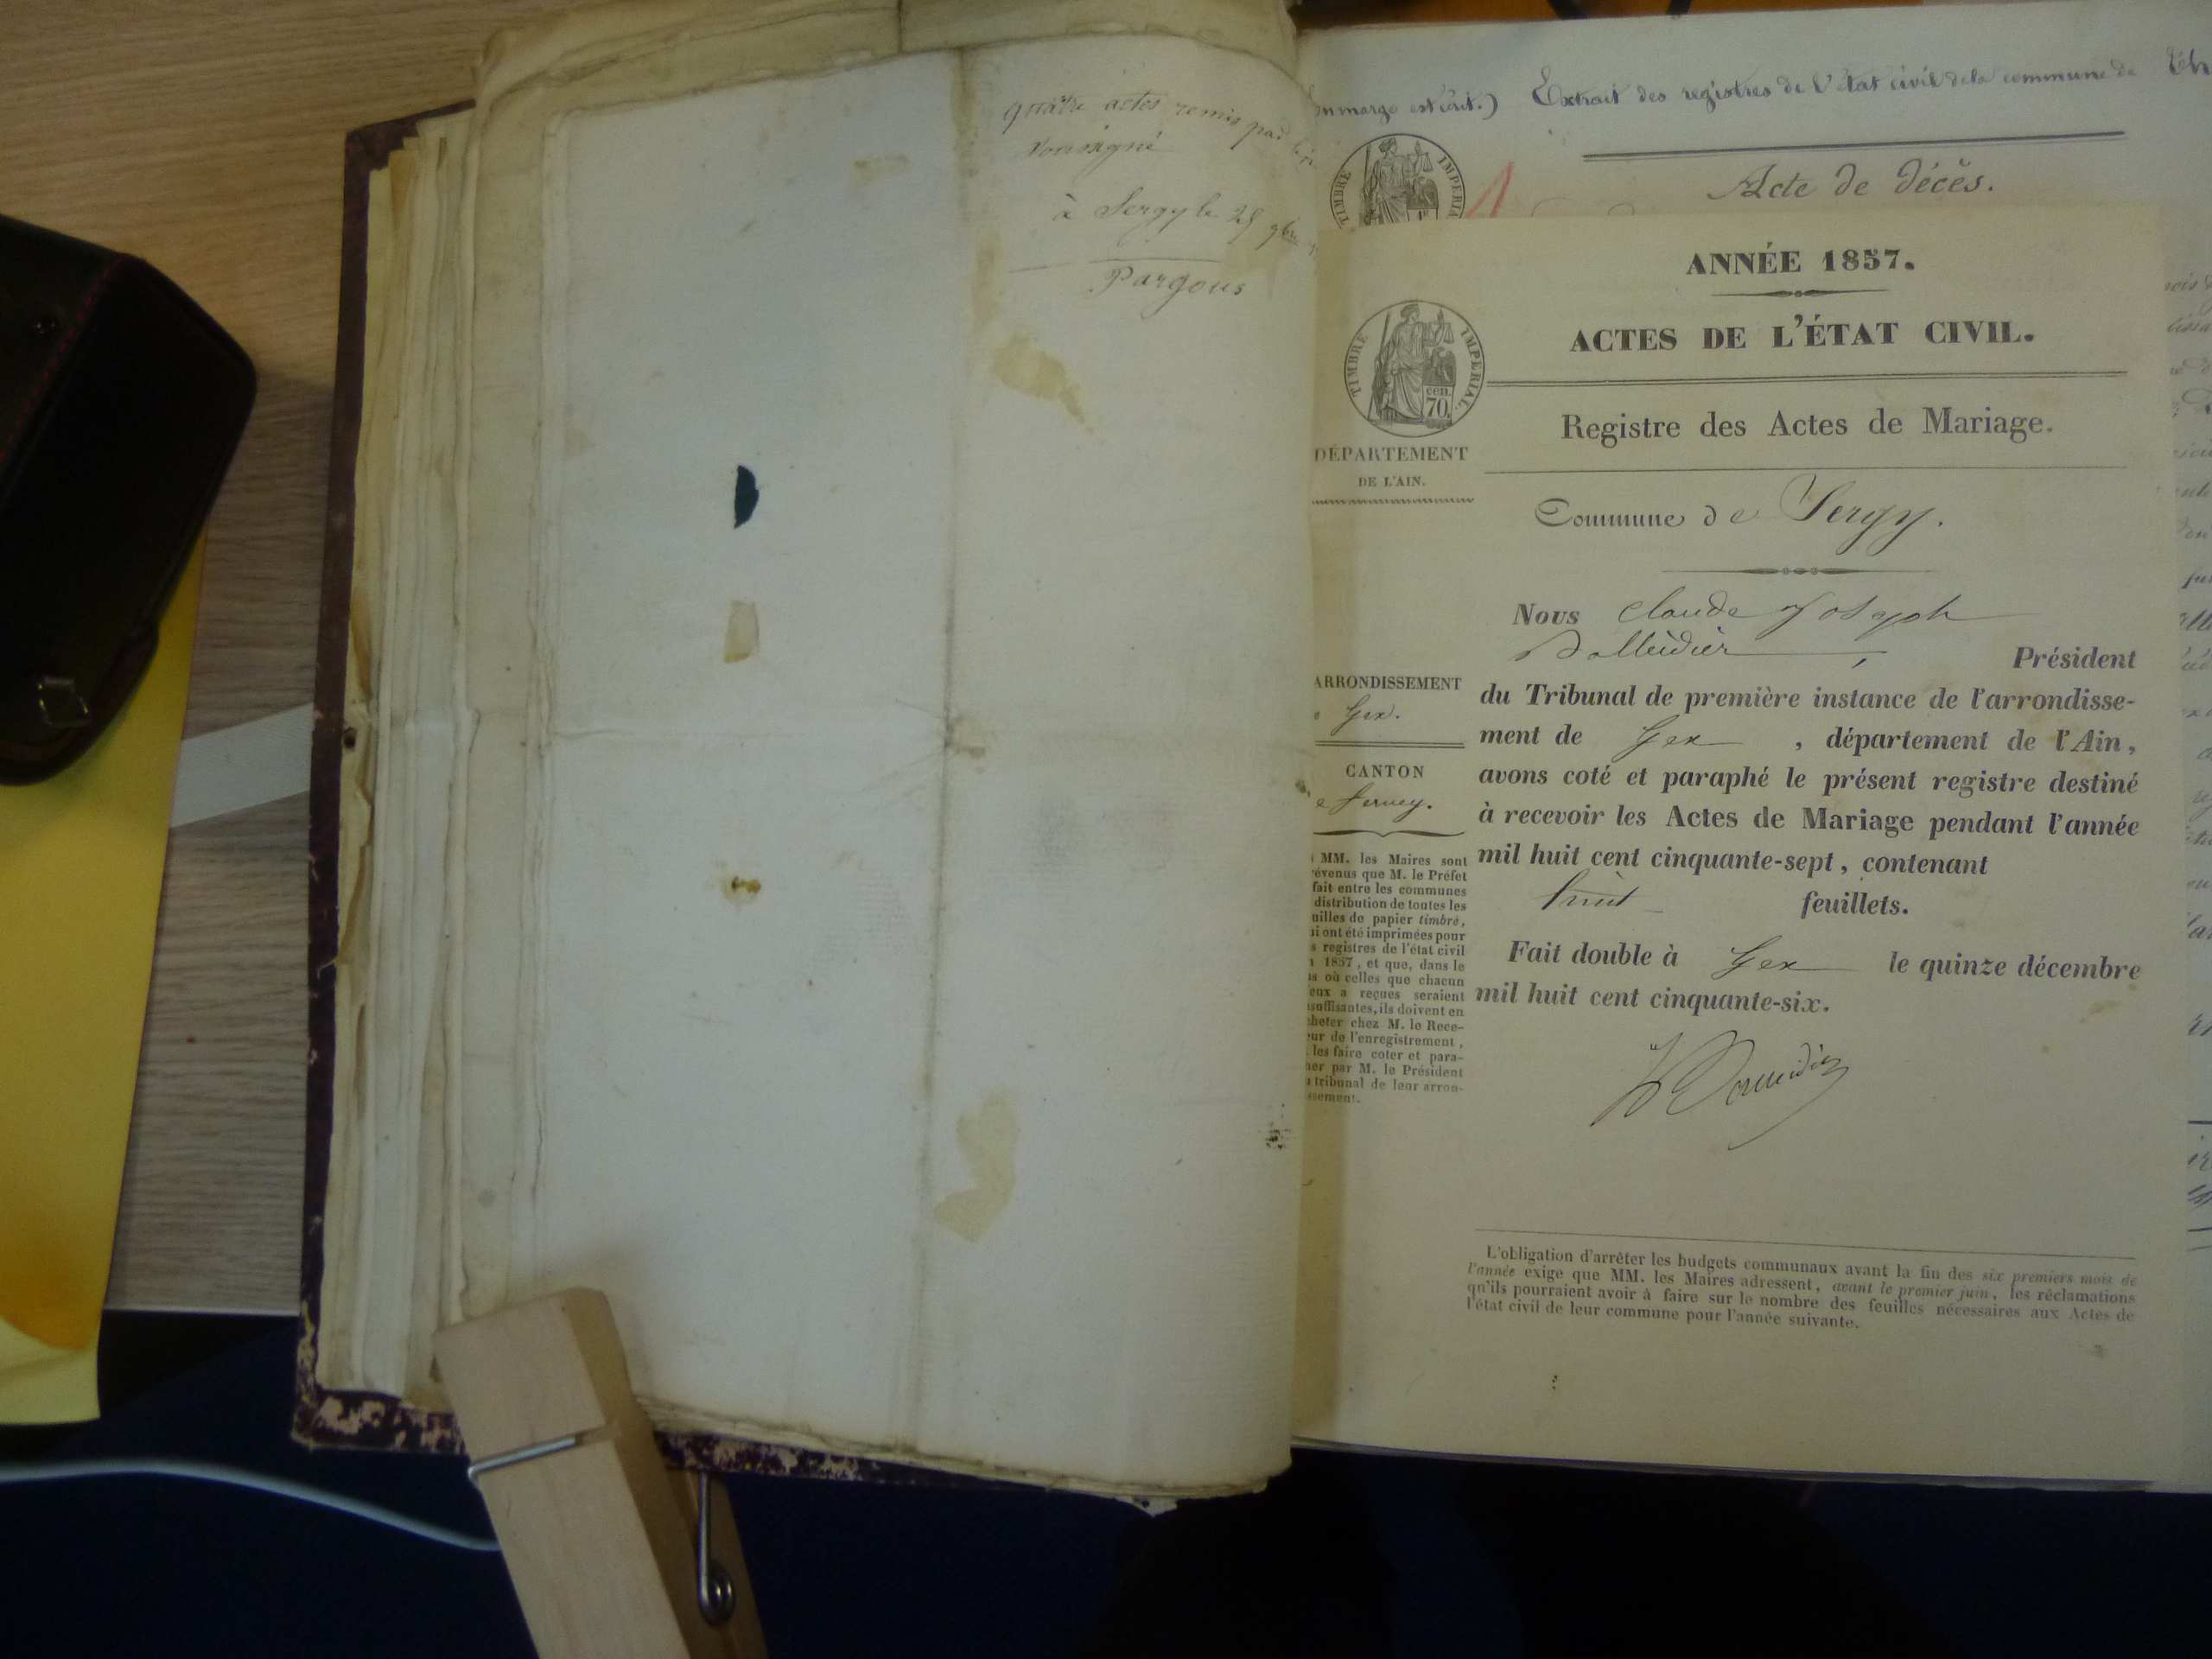 quatre actes remis par le
soussigné
à Sergy le 25 9bre
Pargous
en marge est écrit.) Extrait des registres de l'état civil de la commune de
Acte de décès.
TIMBRE IMPERIAL
ANNÉE 1857.
ACTES DE L'ÉTAT CIVIL.
TIMBRE IMPERIAL.
cen.
70.
Registre des Actes de Mariage.
DÉPARTEMENT
DE L'AIN.
Commune de Sergy.
Nous Claude Joseph
Président
ARRONDISSEMENT
Gex.
CANTON
Ferney.
du Tribunal de première instance de l'arrondisse-
ment de Gex , département de l'Ain,
avons coté et paraphé le présent registre destiné
à recevoir les Actes de Mariage pendant l'année
mil huit cent cinquante-sept, contenant
huit feuillets.
Fait double à Gex le quinze décembre
mil huit cent cinquante-six.
MM. les Maires sont
évenus que M. le Préfet
fait entre les communes
distribution de toutes les
uilles de papier timbré,
i ont été imprimées pour
s registres de l'état civil
1857, et que, dans le
as où celles que chacun
eux a reçues seraient
suffisantes, ils doivent en
cheter chez M. le Rece-
ur de l'enregistrement,
les faire coter et para-
her par M. le Président
u tribunal de leur arron-
ssement.
L'obligation d'arrêter les budgets communaux avant la fin des six premiers mois de
l'année exige que MM. les Maires adressent, avant le premier juin, les réclamations
qu'ils pourraient avoir à faire sur le nombre des feuilles nécessaires aux Actes de
l'état civil de leur commune pour l'année suivante.